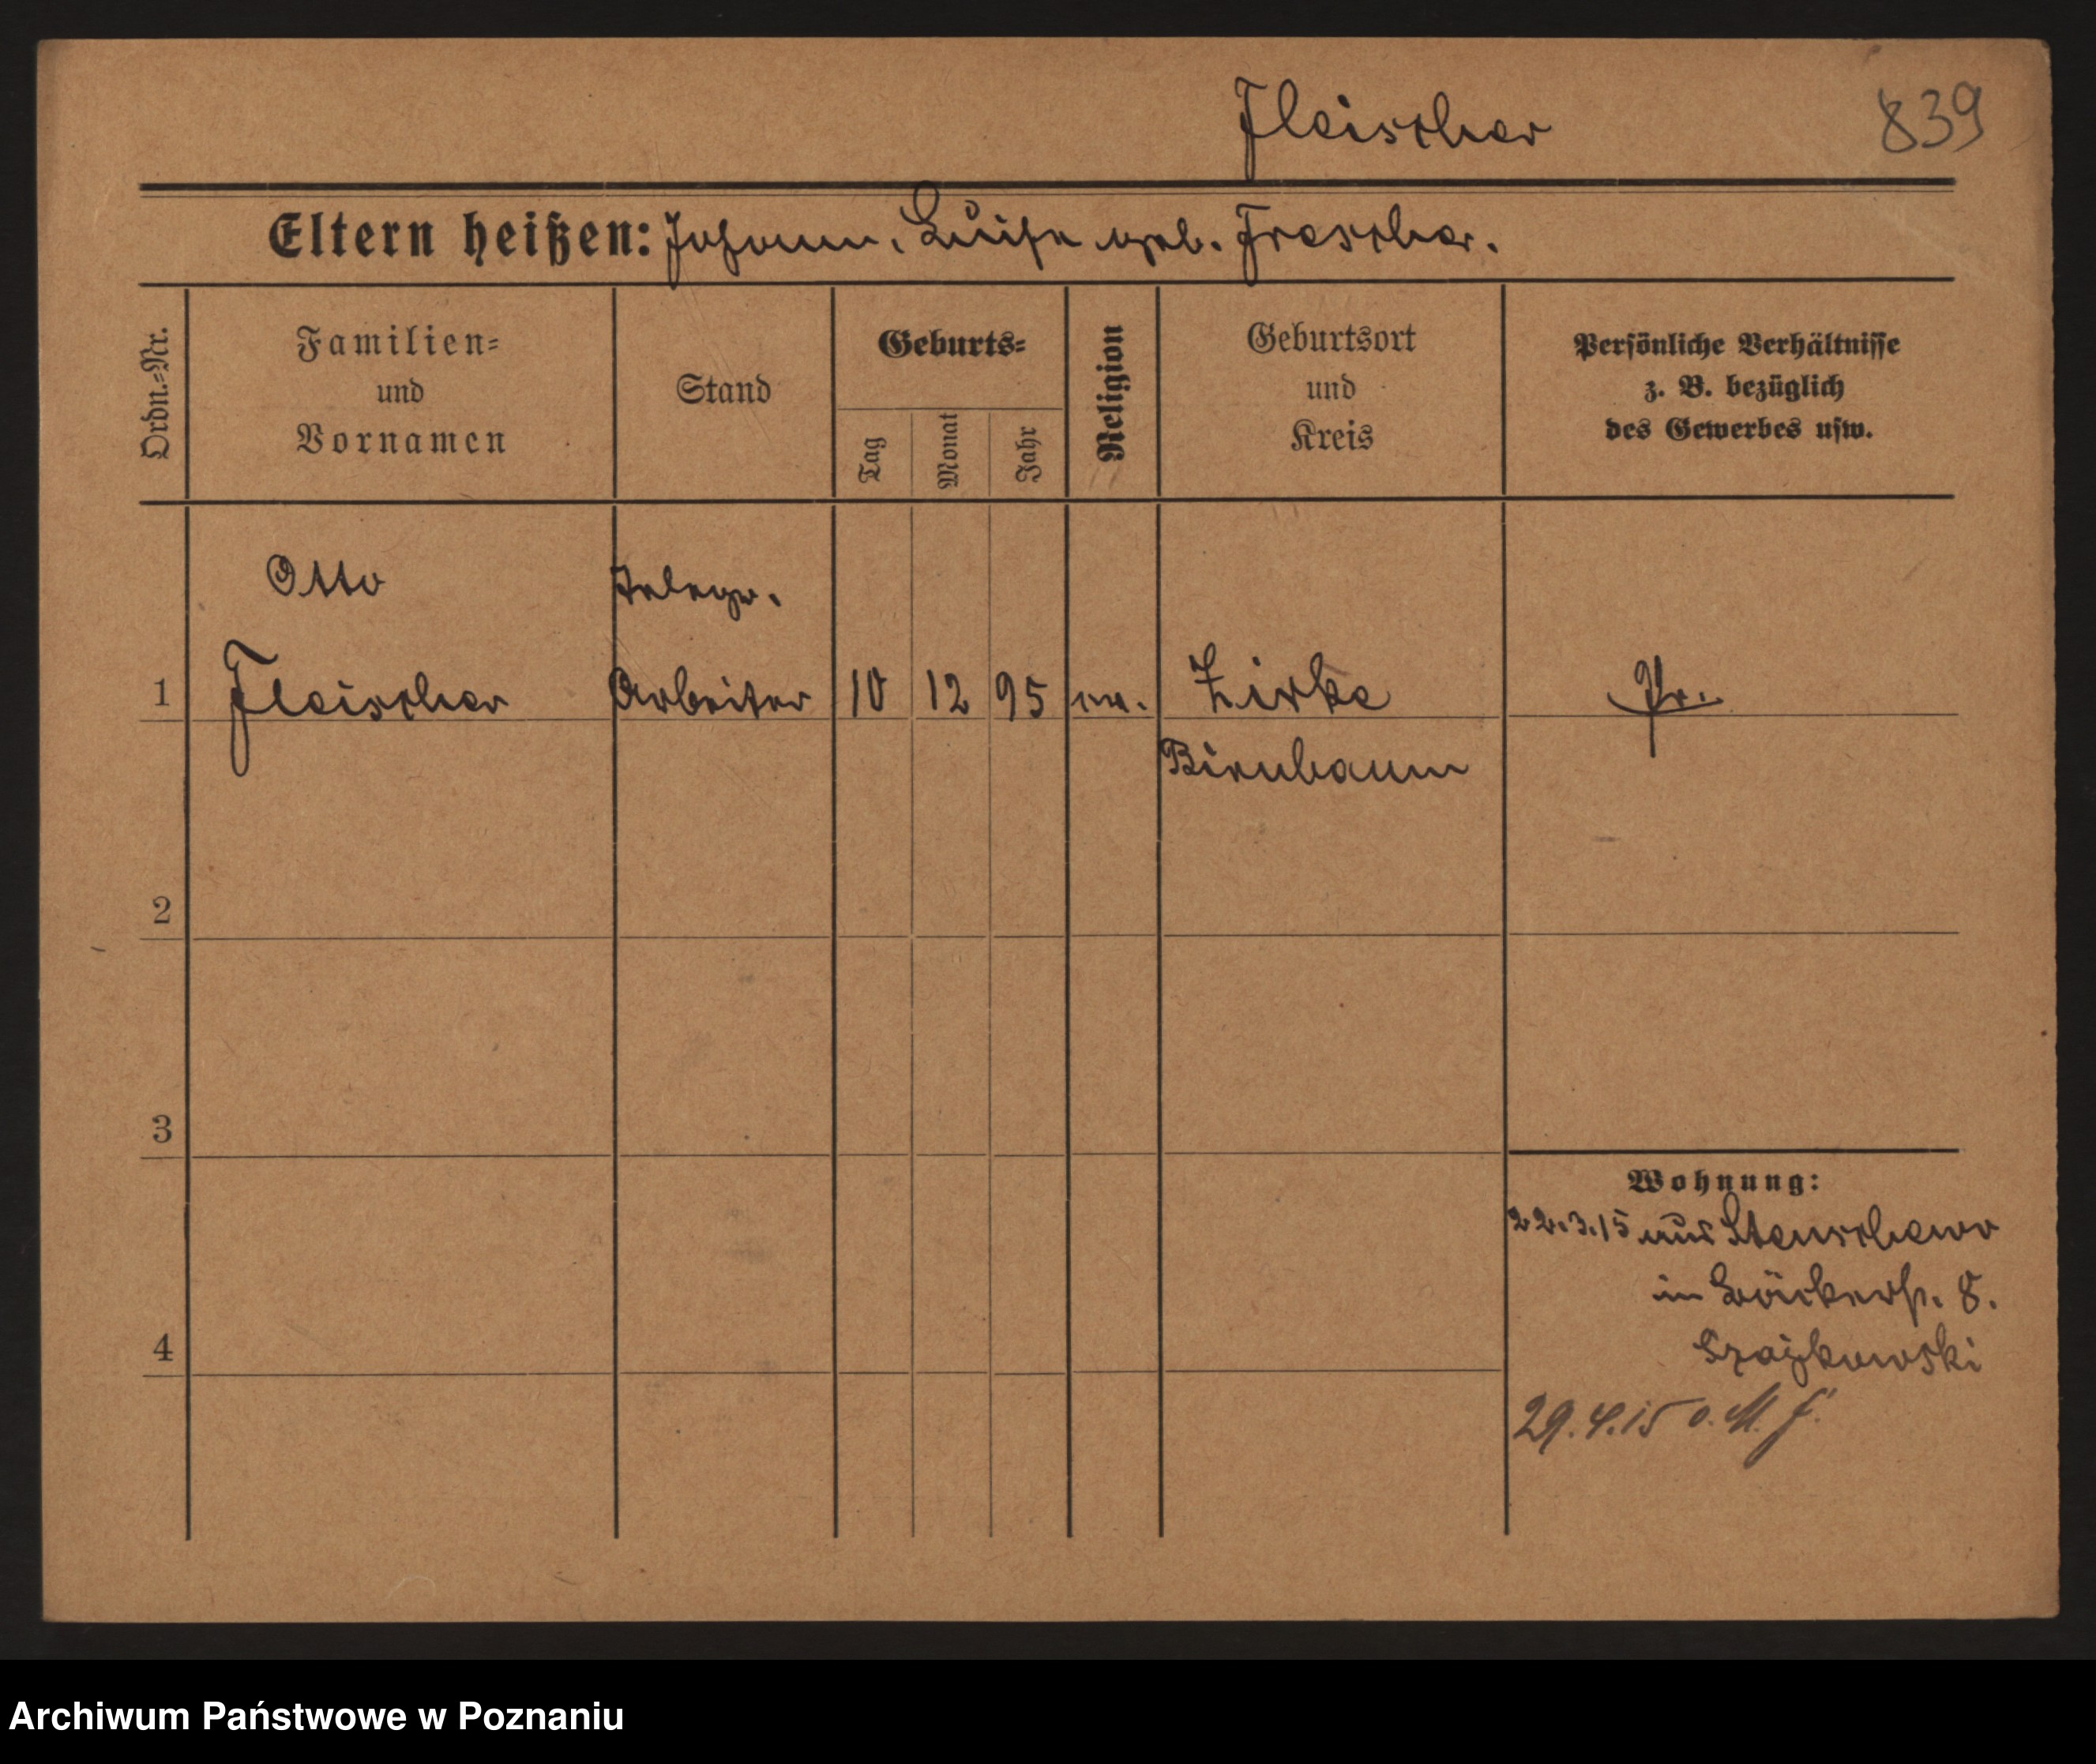 Fleischer
839
Eltern heißen: Johann, Luise geb. Frescher.
Ordn.=Nr.
Familien=
und
Vornamen
Stand
Geburts=
Tag
Monat
Jahr
Religion
Geburtsort
und
Kreis
Persönliche Verhältnisse
z. B. bezüglich
des Gewerbes usw.
Otto
Telegr.
1 Fleischer Arbeiter 10 12 95 ev. Zirke Pr.
Birnbaum
2
3
Wohnung:
22.3.15 aus Stenschewo
in Bäckerst. 8.
4
29.4.15 o. M. f.
Archiwum Państwowe w Poznaniu